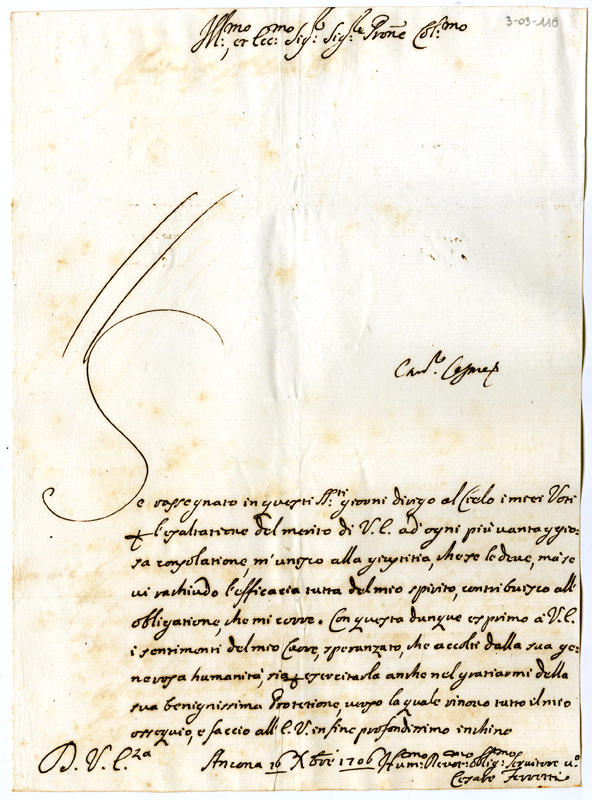 Ill:mo et Ecc:mo Sig:r Sig:re Prone Col:mo
3-03-118
Se rassegnato in questi SS.ti giorni dirigo al Cielo i miei Voti
p l'esaltatione del merito di V.E. ad ogni più vantaggio=
sa consolatione, m'unisco alla giustitia, che se le deve, mà se
vi rachiudo l'efficacia tutta del mio spirito, contribuisco all'
obligatione, che mi corre. Con questa dunque esprimo à V.E.
i sentimenti del mio Cuore, speranzato, che accolti dalla sua ge=
nerosa humanità, sia p esercitarla anche nel gratiarmi della
sua benignissima Protetione, verso la quale rinovo tutto il mio
ossequio, e faccio all'E.V. in fine profondissimo inchino
D. V. E.za
Ancona 16 Xbre 1706
Hum:mo Devot:mo Oblig:mo Servitore v:o
Cesare Ferretti